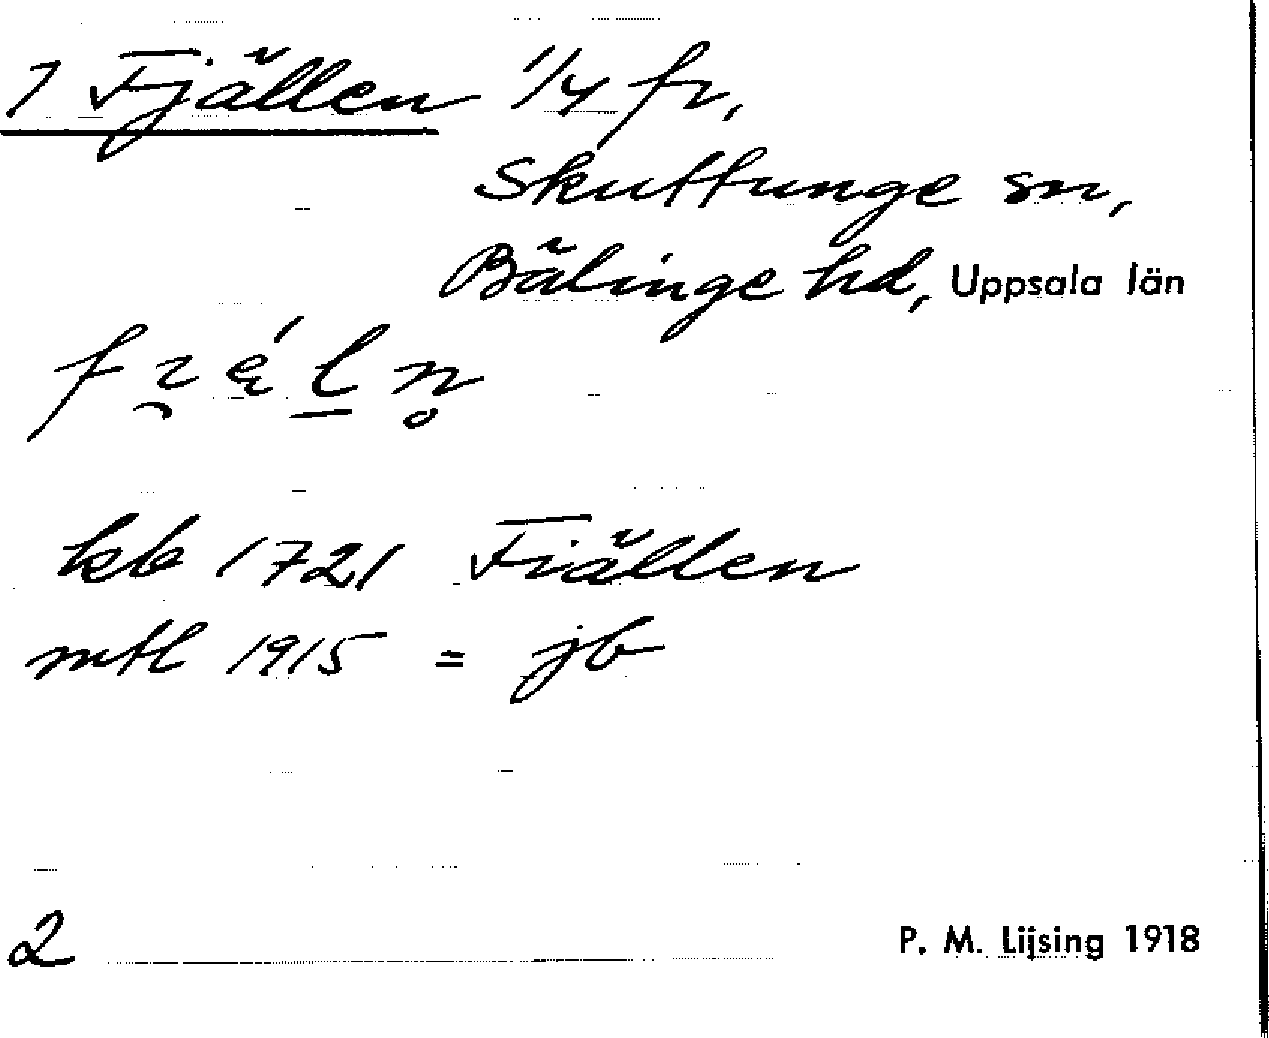 1 Fjällen 1/4 fr,
Skuttunge sn,
Bälinge hd, Uppsala län
kb 1721 Fiällen
mtl 1915 = jb
2
P. M. Lijsing 1918